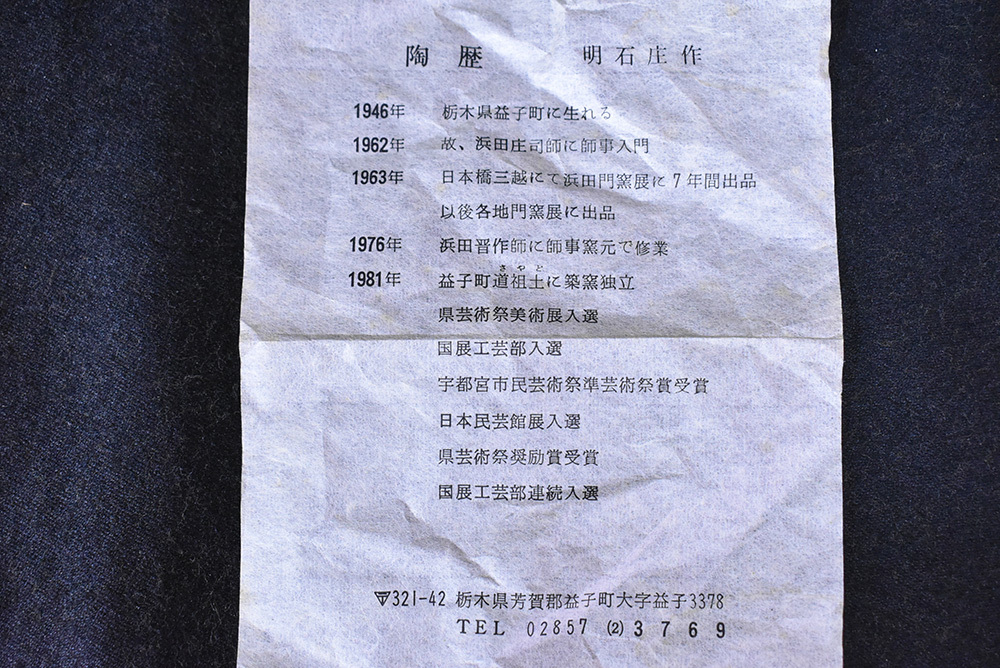 陶歴 明石庄作
1946年 栃木県益子町に生れる
1962年 故、浜田庄司師に師事入門
1963年 日本橋三越にて浜田門窯展に7年間出品
以後各地門窯展に出品
1976年 浜田晋作師に師事窯元で修業
さやど
1981年 益子町道祖土に築窯独立
県芸術祭美術展入選
国展工芸部入選
宇都宮市民芸術祭準芸術祭賞受賞
日本民芸館展入選
県芸術祭奨励賞受賞
国展工芸部連続入選
〒321-42 栃木県芳賀郡益子町大字益子3378
TEL 02857 (2) 3769